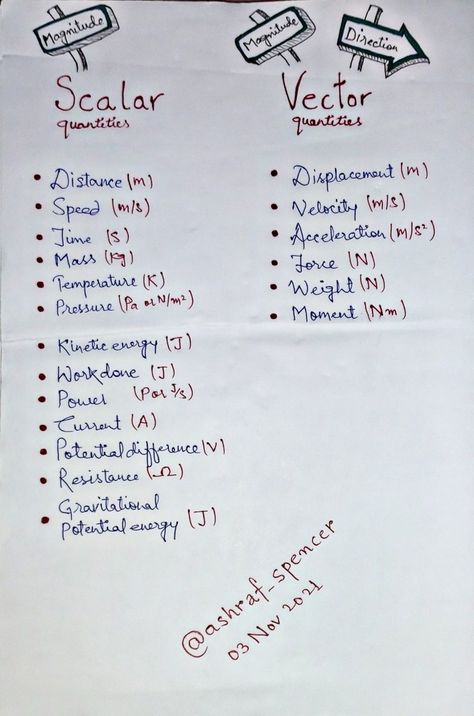 Magnitude
Scalar
quantities
• Distance (m)
• Speed (m/s)
• Time (s)
• Mass (Kg)
• Temperature (K)
• Pressure (Pa or N/m²)
• Kinetic energy (J)
• Work done (J)
• Power (P or J/s)
• Current (A)
• Potential difference (V)
• Resistance (Ω)
• Gravitational
Potential energy (J)
Magnitude
Direction
Vector
quantities
• Displacement (m)
• Velocity (m/s)
• Acceleration (m/s²)
• Force (N)
• Weight (N)
• Moment (Nm)
@ashraf_spencer
03 Nov 2021